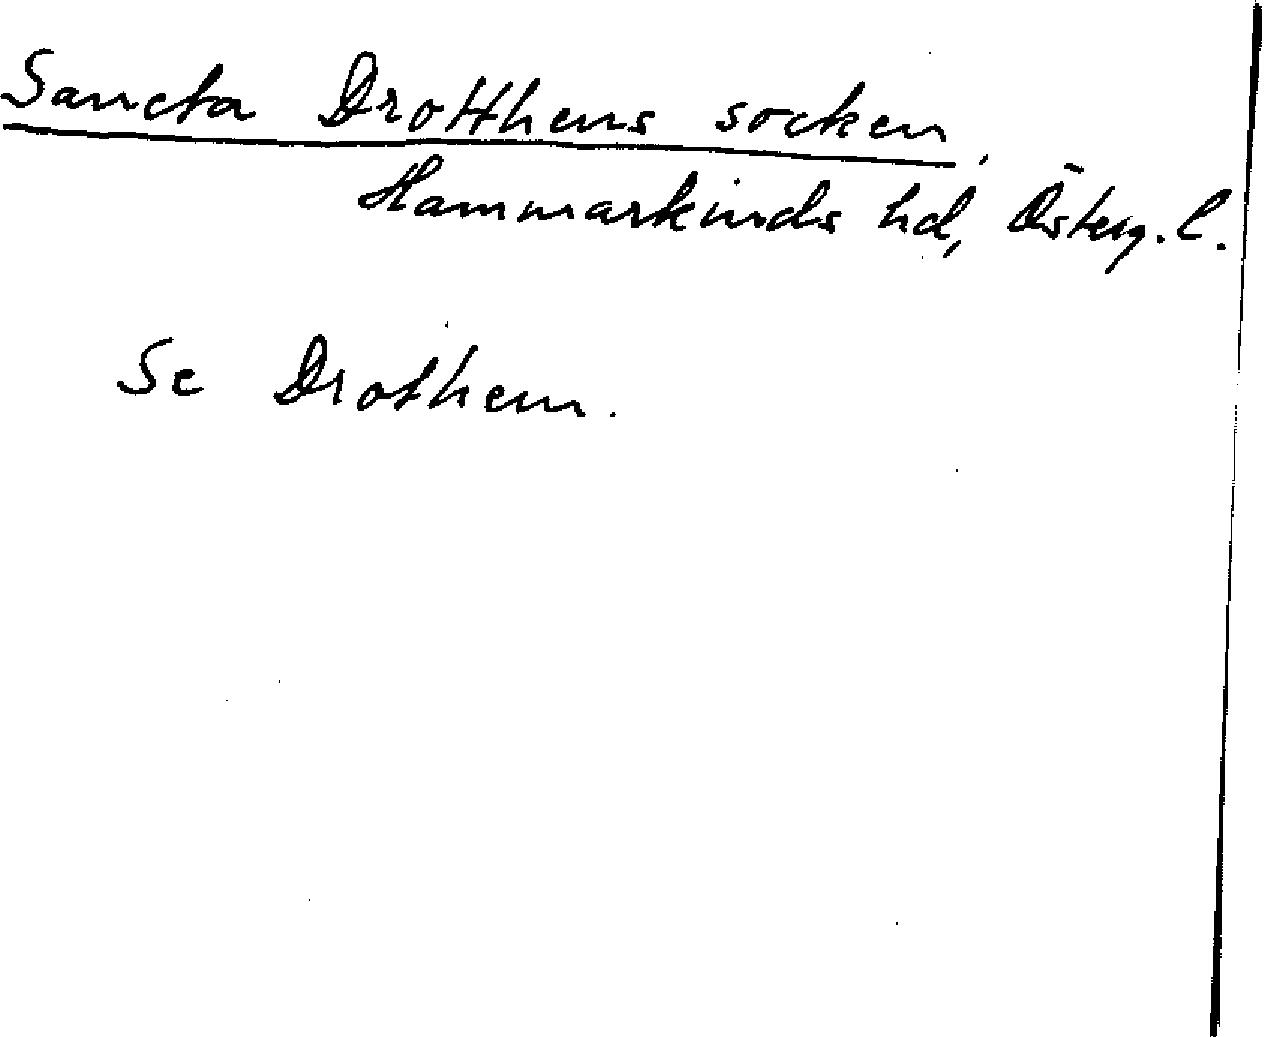 Sancta Drotthens socken,
Hammarkinds hd, Österg. l.
Se Drothem.